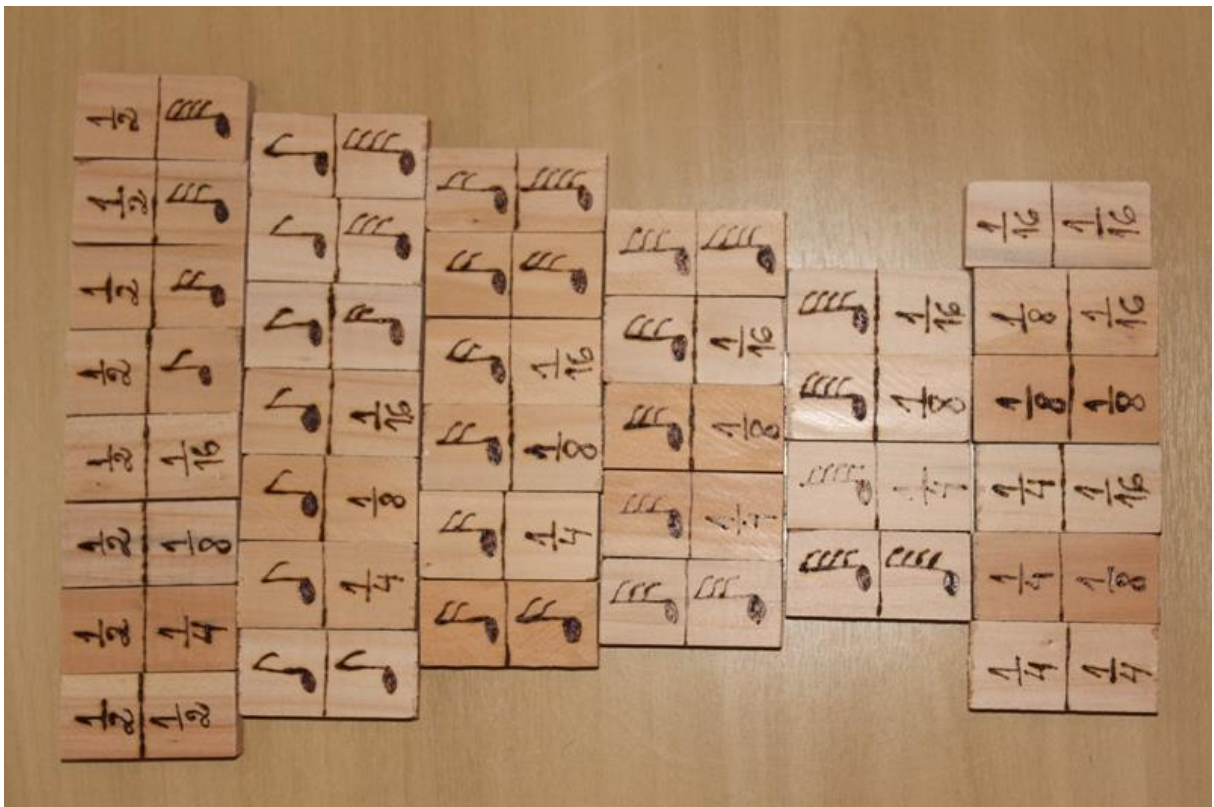 1/2
1/2
1/2
1/2
1/2 1/16
1/2 1/8
1/2 1/4
1/2 1/2
1/16
1/8
1/4
1/16
1/8
1/4
1/16
1/8
1/4
1/16
1/8
1/4
1/16 1/16
1/8 1/16
1/8 1/8
1/4 1/16
1/4 1/8
1/4 1/4